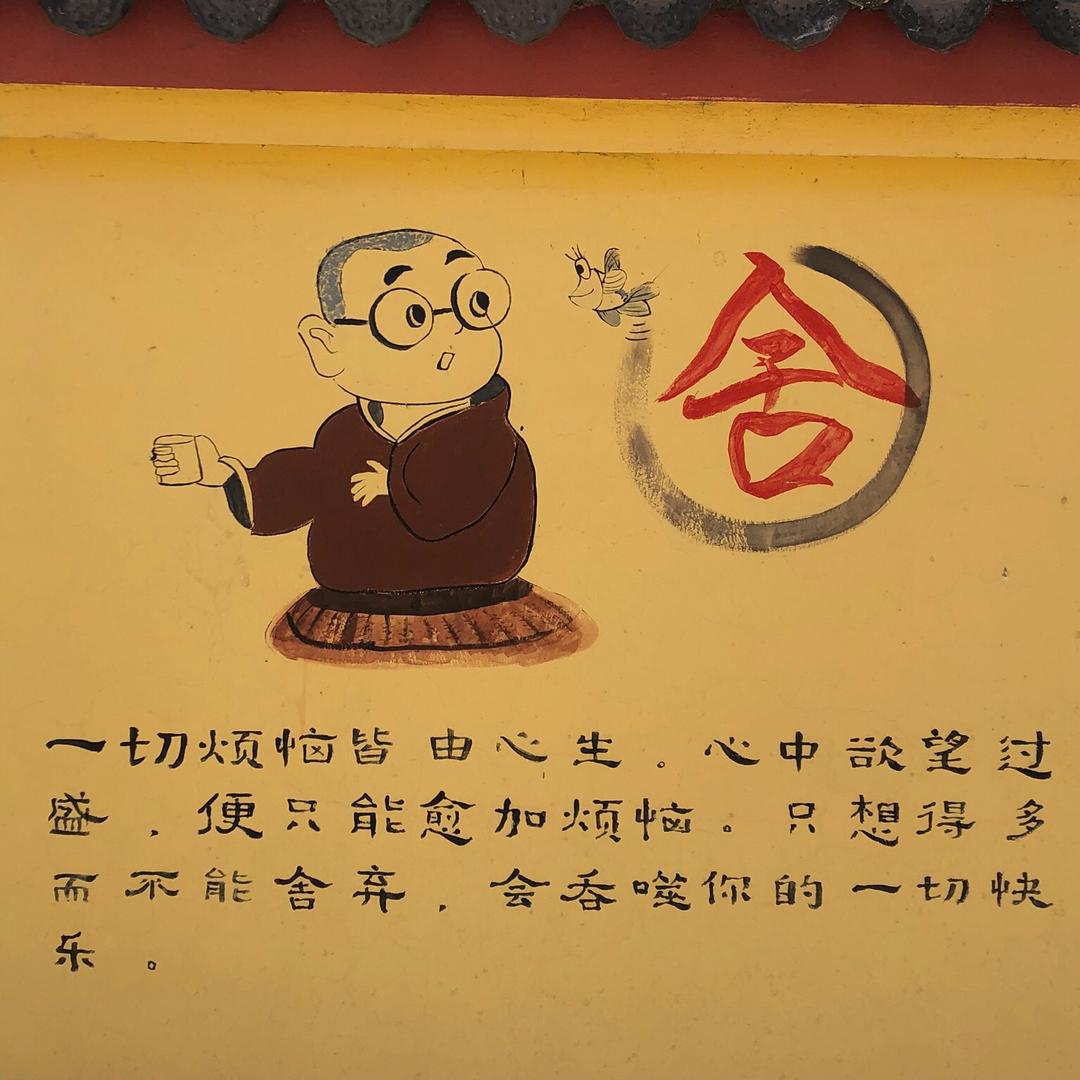 舍
一切烦恼皆由心生。心中欲望过
盛，便只能愈加烦恼。只想得多
而不能舍弃，会吞噬你的一切快
乐。